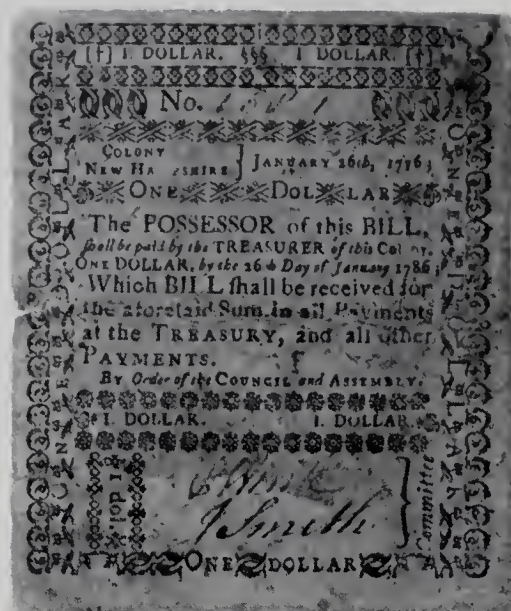 [†] I. DOLLAR. §§§ I DOLLAR. [†]
No.
COLONY
NEW HA SHIRE } JANUARY 26th, 1776;
ONE DOLLAR
The POSSESSOR of this BILL,
ſhall be paid by the TREASURER of this COLONY,
ONE DOLLAR, by the 26th Day of January 1786;
Which BILL ſhall be received for
the aforeſaid Sum in all Payments
at the TREASURY, and all other
PAYMENTS.
BY Order of the COUNCIL and ASSEMBLY.
I. DOLLAR. I. DOLLAR.
1 dol.
J Smith
Committee
ONE DOLLAR
ONE DOLLAR
ONE DOLLAR